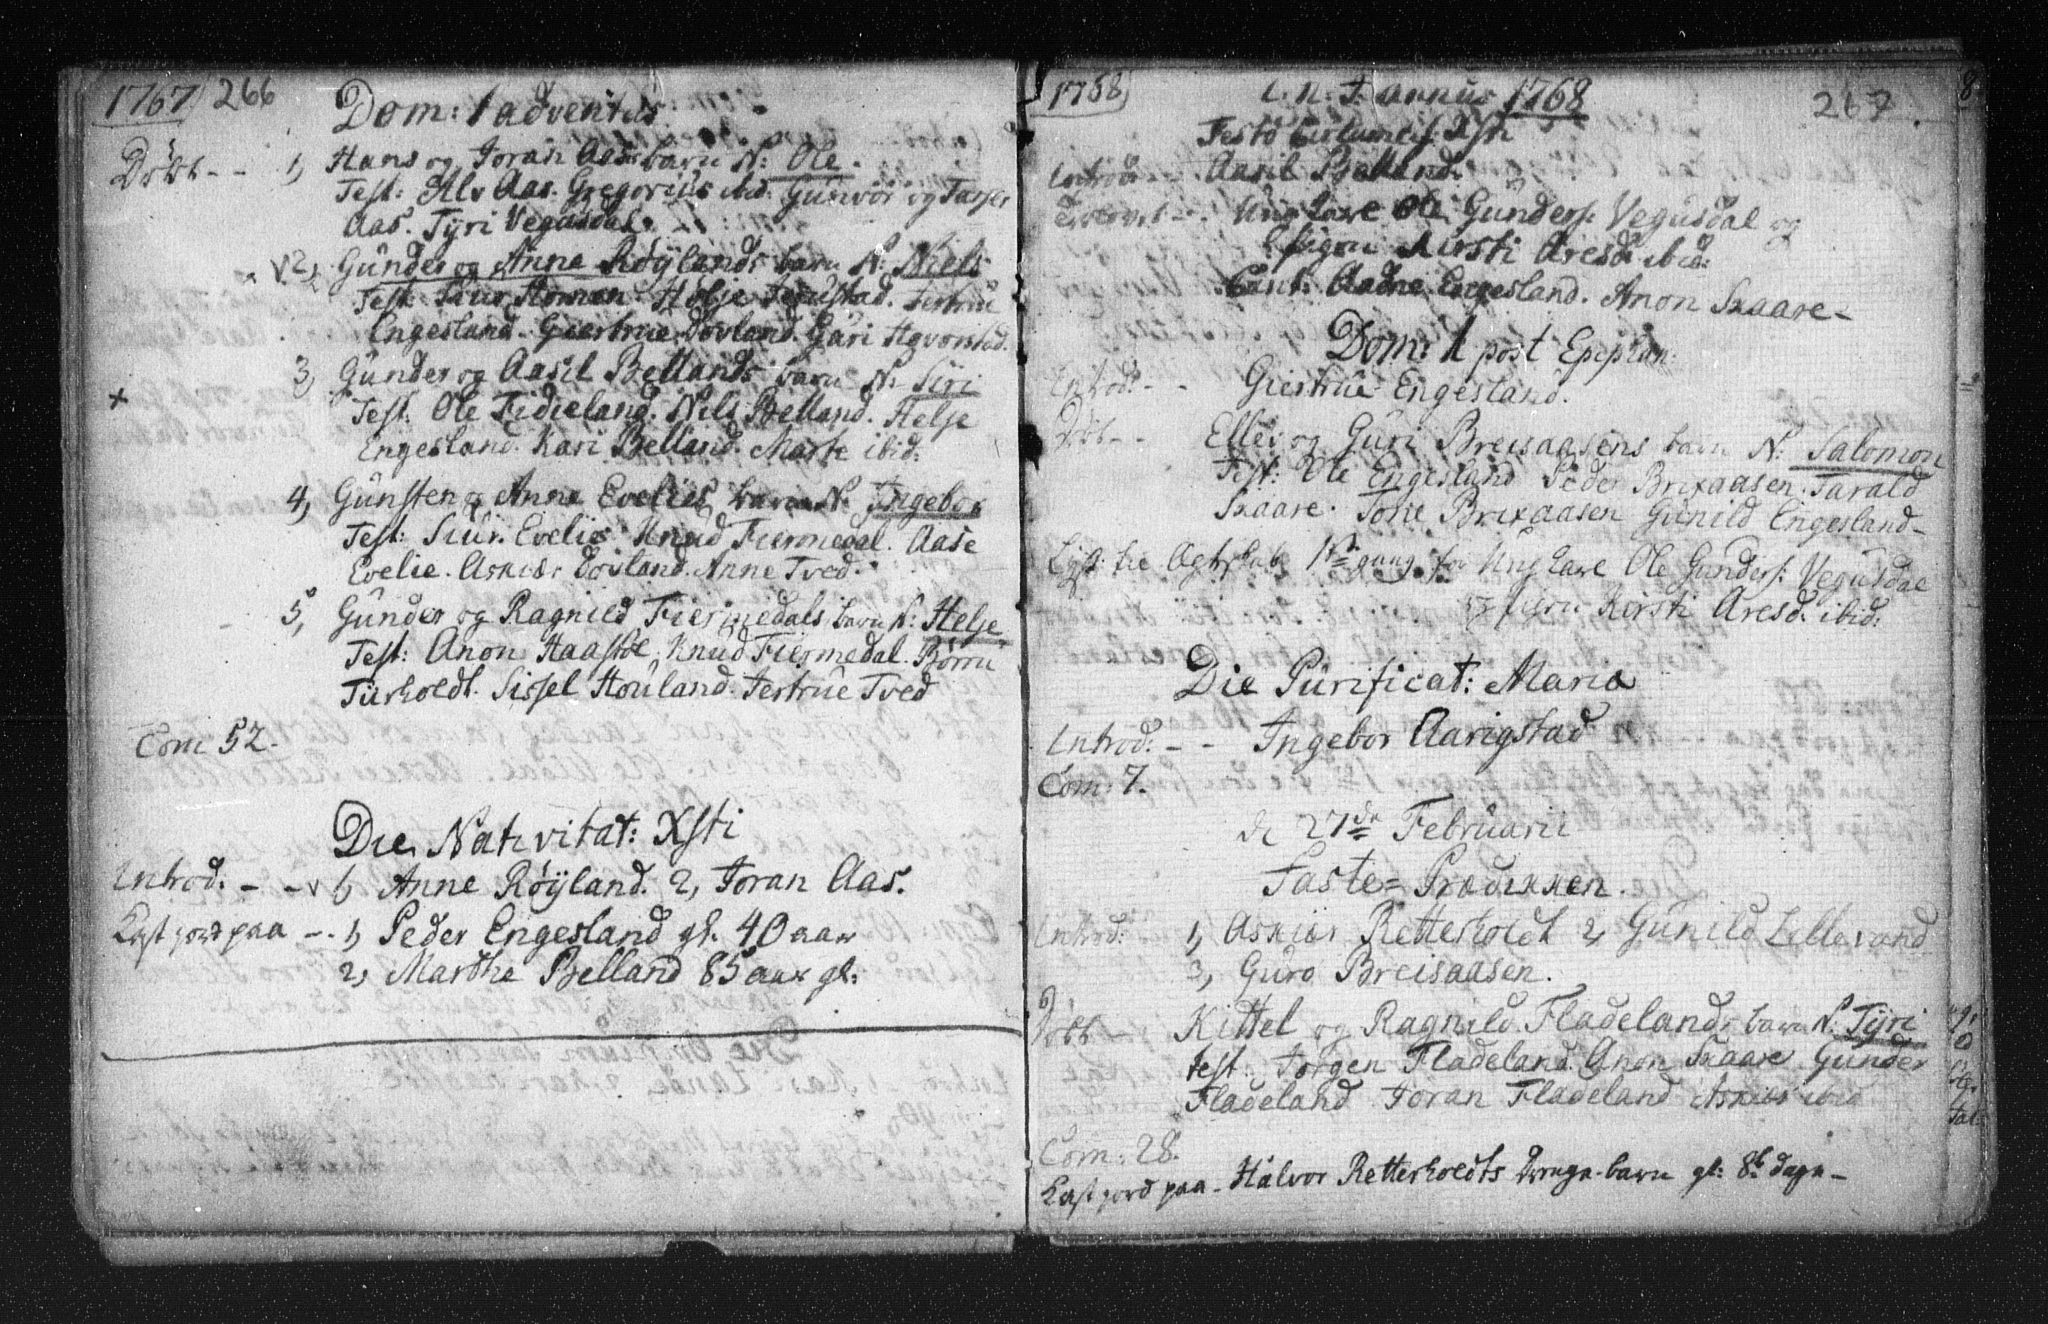 1767 266
Dom: 1 adventus
Døbt - - 1, Hans og Joran Aas barn N: Ole.
Test: Alv Aas. Gregorius ibid. Gunvor og
Aas. Tÿri Vegusdal.
2, Gunder og Anne Røÿlands barn N: Niels
Test: Homan Helje
Engesland. Giertrue Dovland. Gúri
3, Gunder og Aasil Bellands barn N: Siri
Test: Ole Fidieland. Nils Belland. Helje
Engesland. Kari Belland. Marte ibid:
4, Gúnsten og Anne Evelies barn N: Ingebor
Test: Siúr Evelie Knud Fiermedal. Aase
Evelie. Askier Dovland. Anne Tved.
5, Gúnder og Ragnild Fiermedals barn N: Helje
Test: Anon Haastøl. Knud Fiermedal. Børru
Tiurholdt. Sissel Houland. Jertrue Tved
Com 52.
Die Nativitat: Xsti
Introd: - - 1, Anne Røÿland. 2, Joran Aas.
Kast jord paa - . 1, Peder Engesland gl. 40 aar
2, Marthe Belland 85 aar gl:
1768 annus 1768 267
Festo Xsti
Introd: Aasil Belland.
Trolovet - Ung Karl Ole Gunders: Vegusdal og
Pigen Kirsti Aresd: ibid:
Cent: Aadne Engesland. Anon Skaare -
Dom: 1 post Epiphan:
Introd: - - Giertrue Engesland.
Døb - - Ellev og Guri Breisaasens barn N: Salomon
Test: Ole Engesland Peder Brixaasen. Tarald
Skaare. Tone Brixaasen Gunild Engesland -
Lyst til Egteskab 1ste gang for Ung Karl Ole Gunders: Vegusdal
og Pigen Kirsti Aresd: ibid:
Die Purificat: Mariæ
Introd: - - Ingebor Aarigstad
Com: 7.
d 27de Februarii
Faste = Prædikken.
Introd: 1, Askier Retterholdt 2, Gunild Lillesand
3, Guro Breisaasen.
Døbt Kittel og Ragnild Fladelands barn N: Tÿri
Test: Jørgen Fladeland Anon Skaare. Gunder
Fladeland Joran Fladeland Askier ibid
Com: 28.
Kast jord paa - Halvor Retterholdts Drenge-barn gl: 8te dage -